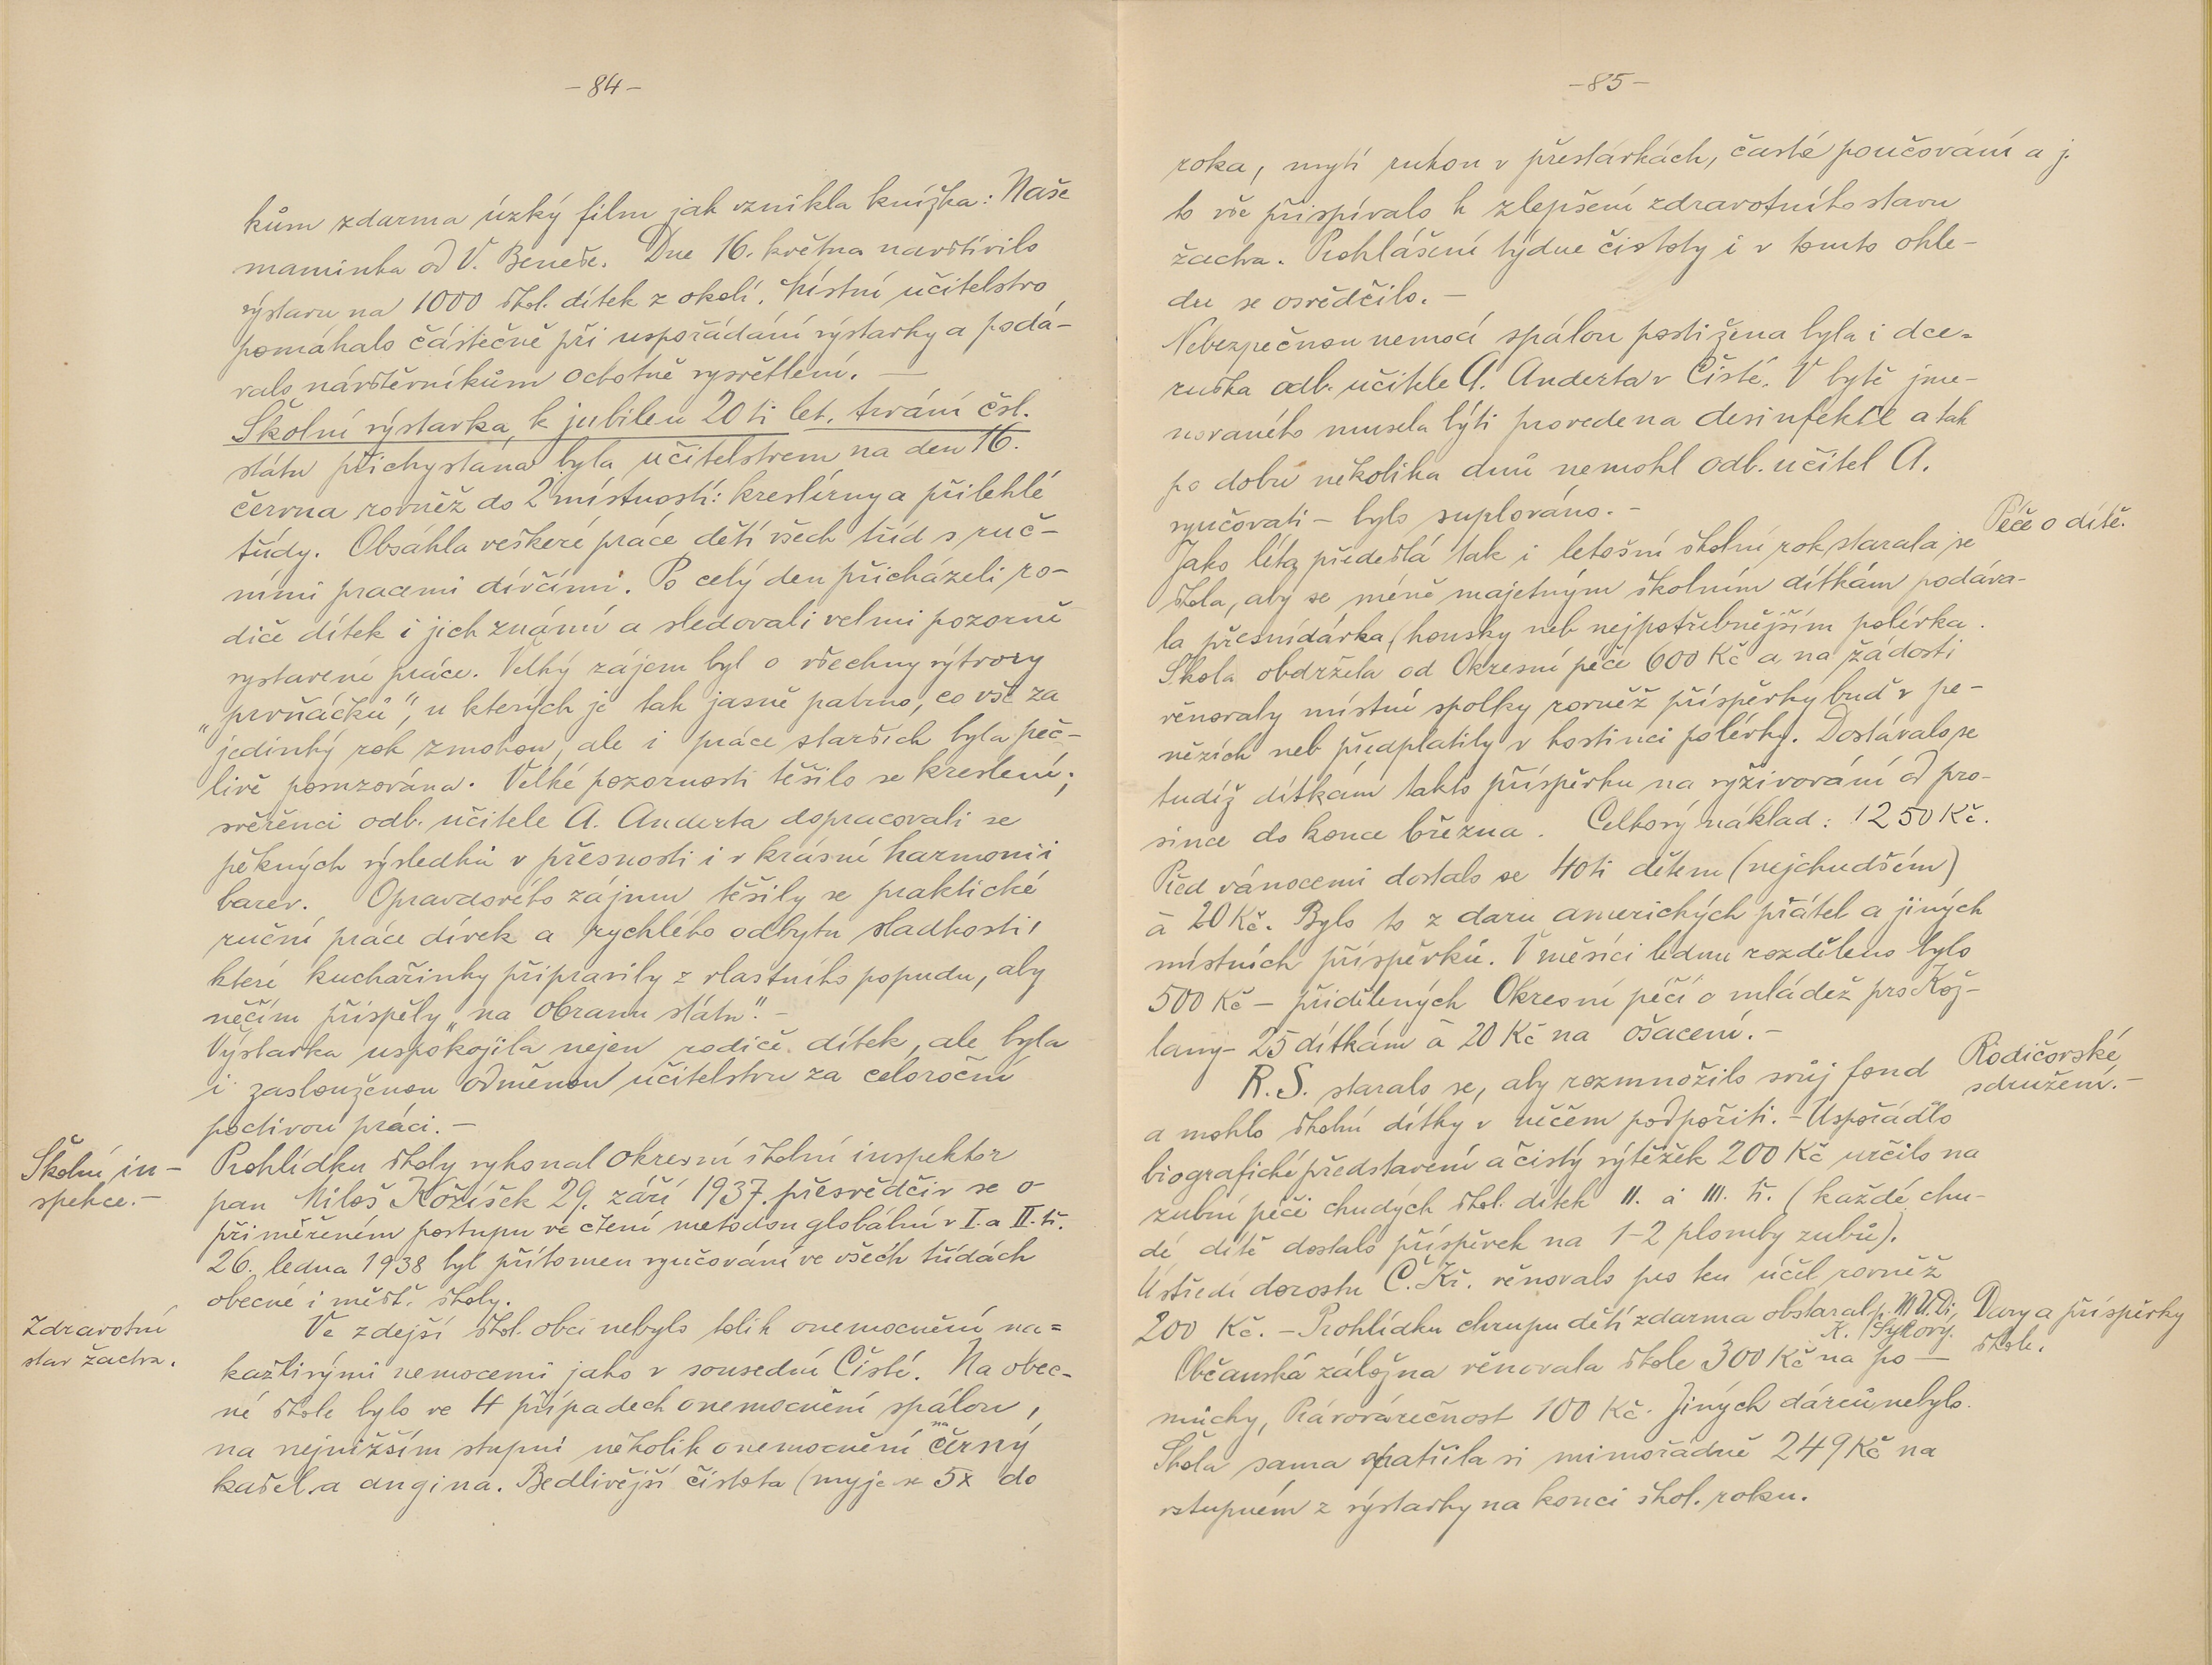 -84-
kům zdarma úzký film jak vznikla knížka: Naše
maminka od V. Beneše. Dne 16. května navštívilo
výstavu na 1000 škol. dítek z okolí. Místní učitelstvo
pomáhalo částečně při uspořádání výstavky a podá-
valo návštěvníkům ochotně vysvětlení. —
Školní výstavka k jubileu 20ti let. trvání čsl.
státu přichystána byla učitelstvem na den 16.
června rovněž do 2 místností: kreslírny a přilehlé
třídy. Obsáhla veškeré práce dětí všech tříd s ruč-
ními pracemi dívčími. Po celý den přicházeli ro-
diče dítek i jich známí a sledovali velmi pozorně
vystavené práce. Velký zájem byl o všechny výtvory
„prvňáčků", u kterých je tak jasně patrno, co vše za
jedinký rok zmohou, ale i práce starších byla peč-
livě posuzována. Velké pozornosti těšilo se kreslení;
svěřenci odb. učitele A. Anderta dopracovali se
pěkných výsledků v přesnosti i v krásné harmonii
barev. Opravdového zájmu těšily se praktické
ruční práce dívek a rychlého odbytu sladkosti,
které kuchařinky připravily z vlastního popudu, aby
něčím přispěly „na obranu státu". -
Výstavka uspokojila nejen rodiče dítek, ale byla
i zaslouženou odměnou učitelstvu za celoroční
poctivou práci. -
Školní in-
spekce. -
Prohlídku školy vykonal okresní školní inspektor
pan Miloš Kožíšek 29. září 1937. přesvědčiv se o
přiměřeném postupu ve čtení metodou globální v I. a II. tř.
26. ledna 1938 byl přítomen vyučování ve všech třídách
obecné i měšť. školy.
Zdravotní
stav žactva.
Ve zdejší škol. obci nebylo tolik onemocnění na=
kažlivými nemocemi jako v sousední Čisté. Na obec-
né škole bylo ve 4 případech onemocnění spálou,
na nejnižším stupni několik onemocnění na černý
kašel a angina. Bedlivější čistota (myje se 5x do
-85-
roka, mytí rukou v přestávkách, časté poučování a j.
to vše přispívalo k zlepšení zdravotního stavu
žactva. Prohlášení týdne čistoty i v tomto ohle-
du se osvědčilo. -
Nebezpečnou nemocí spálou postižena byla i dce=
ruška odb. učitele A. Anderta v Čisté. V bytě jme-
novaného musela býti provedena desinfekce a tak
po dobu několika dnů nemohl odb. učitel A.
vyučovati - bylo suplováno. -
Péče o dítě.
Jako léta předešlá tak i letošní školní rok starala se
škola, aby se méně majetným školním dítkám podáva-
la přesnídávka (housky neb nejpotřebnějším polévka.
Škola obdržela od Okresní péče 600 Kč a na žádosti
věnovaly místní spolky rovněž příspěvky buď v pe-
nězích neb předplatily v hostinci polévky. Dostávalo se
tudíž dítkám takto příspěvku na vyživování od pro-
since do konce března. Celkový náklad: 1250 Kč.
Před vánocemi dostalo se 40ti dětem (nejchudším)
à 20 Kč. Bylo to z daru amerických přátel a jiných
místních příspěvků. V měsíci lednu rozděleno bylo
500 Kč - přidělených Okresní péčí o mládež pro Kož-
lany - 25 dítkám à 20 Kč na ošacení. -
Rodičovské
sdružení. -
R. S. staralo se, aby rozmnožilo svůj fond
a mohlo školní dítky v něčem podpořiti. - Uspořádlo
biografické představení a čistý výtěžek 200 Kč určilo na
zubní péči chudých škol. dítek II. a III. tř. (každé chu-
dé dítě dostalo příspěvek na 1-2 plomby zubů).
Ústředí dorostu Č. Kř. věnovalo pro ten účel rovněž
200 Kč. - Prohlídku chrupu dětí zdarma obstaral p. MUDr.
K. Sýkorý.
Dary a příspěvky
škole.
Občanská záložna věnovala škole 300 Kč na po-
můcky, Právovárečnost 100 Kč. Jiných dárců nebylo.
Škola sama opatřila si mimořádně 249 Kč na
vstupném z výstavky na konci škol. roku.